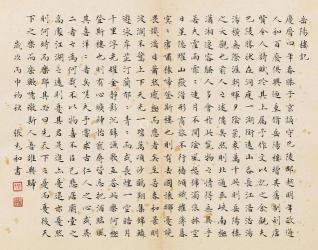 岳陽樓記
慶曆四年春滕子京謫守巴陵郡越明年政通
人和百廢俱興迺重修岳陽樓增其舊制刻唐
賢今人詩賦於其上屬予作文以記之余觀夫
巴陵勝狀在洞庭一湖銜遠山吞長江浩浩湯
湯橫無際涯朝暉夕陰氣象萬千此則岳陽樓
之大觀也前人之述備矣然則北通巫峽南極
瀟湘遷客騷人多會於此覽物之情得無異乎
若夫霪雨霏霏連月不開陰風怒號濁浪排空
日星隱耀山岳潛形商旅不行檣傾楫摧薄暮冥
冥虎嘯猿啼登斯樓也則有去國懷鄉憂讒
畏譏滿目蕭然感極而悲者矣至若春和景明
波瀾不驚上下天光一碧萬頃沙鷗翔集錦鱗
游泳岸芷汀蘭郁郁青青而或長煙一空皓月
千里浮光耀金靜影沉璧漁歌互答此樂何極
登斯樓也則有心曠神怡寵辱皆忘把酒臨風
其喜洋洋者矣嗟夫予嘗求古仁人之心或異
二者之為何哉不以物喜不以己悲居廟堂之
高處江湖之遠則憂其君是進亦憂退亦憂然
則何時而樂耶其必曰先天下之憂而憂後天
下之樂而樂歟噫微斯人吾誰與歸
歲次丙申初秋 張光和書